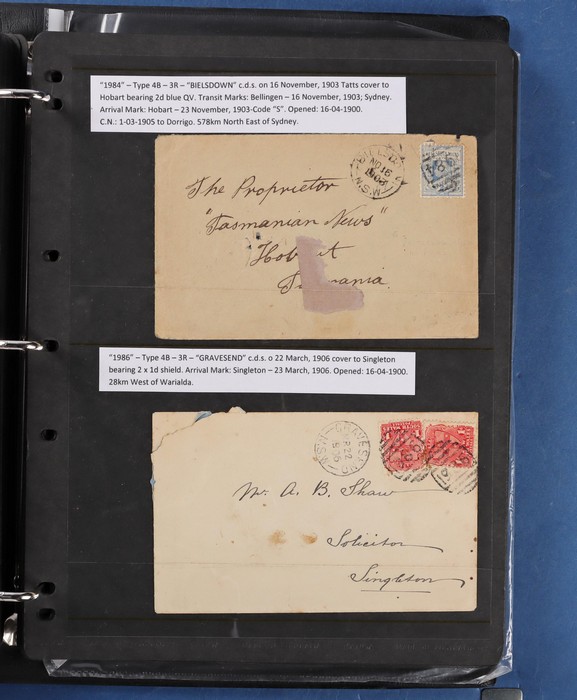 "1984" – Type 4B – 3R – "BIELSDOWN" c.d.s. on 16 November, 1903 Tatts cover to
Hobart bearing 2d blue QV. Transit Marks: Bellingen – 16 November, 1903; Sydney.
Arrival Mark: Hobart – 23 November, 1903-Code "S". Opened: 16-04-1900.
C.N.: 1-03-1905 to Dorrigo. 578km North East of Sydney.
NO 16
1903
N.S.W
The Proprietor
"Tasmanian News"
Hobart
"1986" – Type 4B – 3R – "GRAVESEND" c.d.s. o 22 March, 1906 cover to Singleton
bearing 2 x 1d shield. Arrival Mark: Singleton – 23 March, 1906. Opened: 16-04-1900.
28km West of Warialda.
GRAVESEND
N.S.W
Mr. A. B. Shaw
Solicitor
Singleton